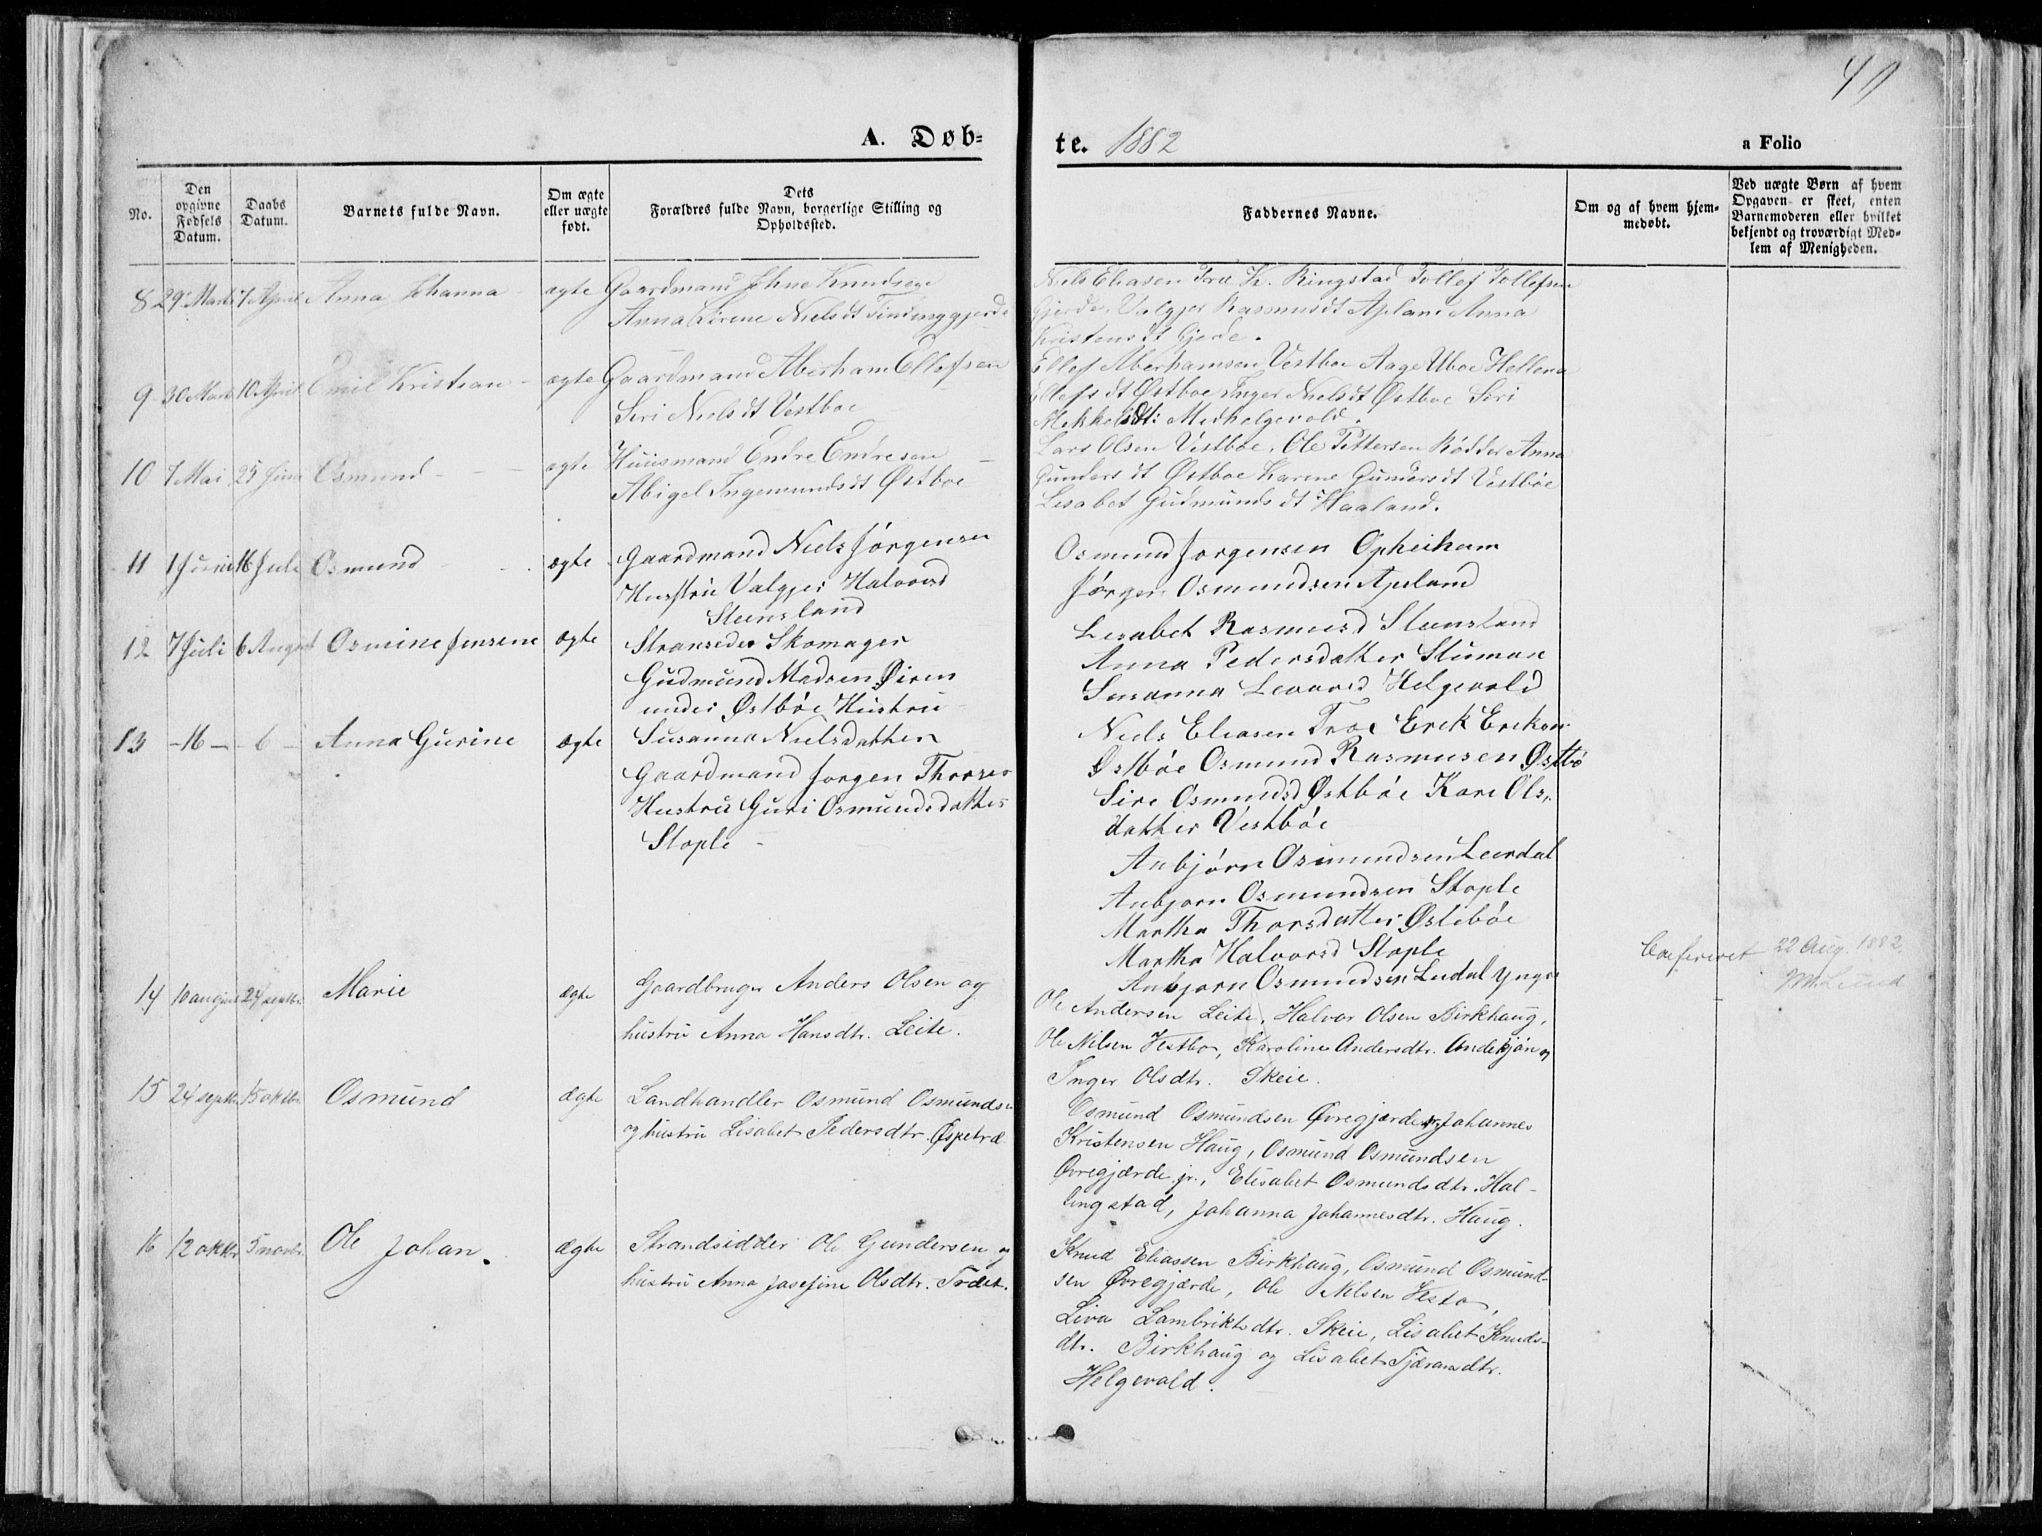 40
A. Døb=
te. 1882
a Folio
No.
Den opgivne Fødsels Datum.
Daabs Datum.
Barnets fulde Navn.
Om ægte eller uægte født.
Dets Forældres fulde Navn, borgerlige Stilling og Opholdssted.
Faddernes Navne.
Om og af hvem hjemmedøbt.
Ved uægte Børn af hvem Opgaven er skeet, enten Barnemoderen eller hvilket bekjendt og troværdigt Medlem af Menigheden.
8 29 Marts 7 April Anna Johanna ægte Gaardmand Johne Knudsen
Anna Sirene Nielsdt
Niels Eliasen Træ K. Ringstad Tollef Tollefsen
Gjerde, Valgjer Rasmusdt Apland Anna
Kristensdt Gjerde.
9 30 Marts 10 April Emil Kristian ægte Gaardmand Aberham Ellefsen
Siri Nielsdt Vestbøe
Ellef Aberhamsen Vestboe Aage Uboe Hellena
Ellefsdt Østboe Inger Nielsdt Østboe Siri
Mikkelsdt: Medhelgevold.
10 7 Mai 25 Juni Osmund ægte Huusmand Endre Endresen
Abigel Ingemundsdt Østboe
Lars Olsen Vestboe, Ole Pettersen Rødder Anna
Gundersdt Østboe Karene Gundersdt Vestbøe
Lisabet Gudmundsdt Haaland.
11 1 Juni 16 Juli Osmund ægte Gaardmand Niels Jørgensen
Hustru Valgjer Halvorsd
Steensland
Osmund Jorgensen Opheihem
Jørgen Osmundsen Apeland
Lesabet Rasmusd Stensland
Anna Pedersdatter Stumoe
Susanna Levaarsd Helgevold
12 7 Juli 6 August Osmine Jensene ægte Stransider Skomager
Gudmund Madsen Øiren
under Østbøe Hustru
Susanna Nielsdatter
Niels Eliasen Træe Erik Eriksen
Østbøe Osmund Rasmusen Østbø
Sire Osmundsd Østbøe Kare Ols,
datter Vestbøe
13 -16- -6- Anna Gurine ægte
Gaardmand Jorgen Thorsen
Hustru Guri Osmundsdatter
Stople -
Anbjørn Osmundsen Leerdal
Anbjorn Osmundsen Stople
Martha Thorsdatter Østebøe
Martha Halvorsd Stople
Anbjorn Osmundsen Lerdal Yngr
Confereret 22 Aug. 1882.
14 10 august 24 septbr Marie ægte Gaardbruger Anders Olsen og
hustru Anna Hansdtr. Leite.
Ole Andersen Leite, Halvor Olsen Birkhaug,
Ole Nilsen Vestbø, Karoline Andersdtr. og
Inger Olsdtr. Skeie.
15 24 septbr 15 oktbr Osmund ægte Landhandler Osmund Osmunds.
og hustru Lisabet Pedersdtr. Øspetræ
Osmund Osmundsen Øvregjærde sr, Johannes
Kristensen Haug, Osmund Osmundsen
Øvregjærde jr., Elisabet Osmundsdtr. Hal-
lingstad, Johanna Johannesdtr. Haug.
16 12 oktbr 5 novbr. Ole Johan. ægte Strandsidder Ole Gundersen og
hustru Anna Josefine Olsdtr. Træet.
Knud Eliassen Birkhaug, Osmund Osmund-
sen Øvregjærde, Ole Nilsen Vestbø,
Liva Lambriktsdtr. Skeie, Lisabet Knuds-
dtr. Birkhaug og Lisabet Tjæransdtr.
Helgevold.